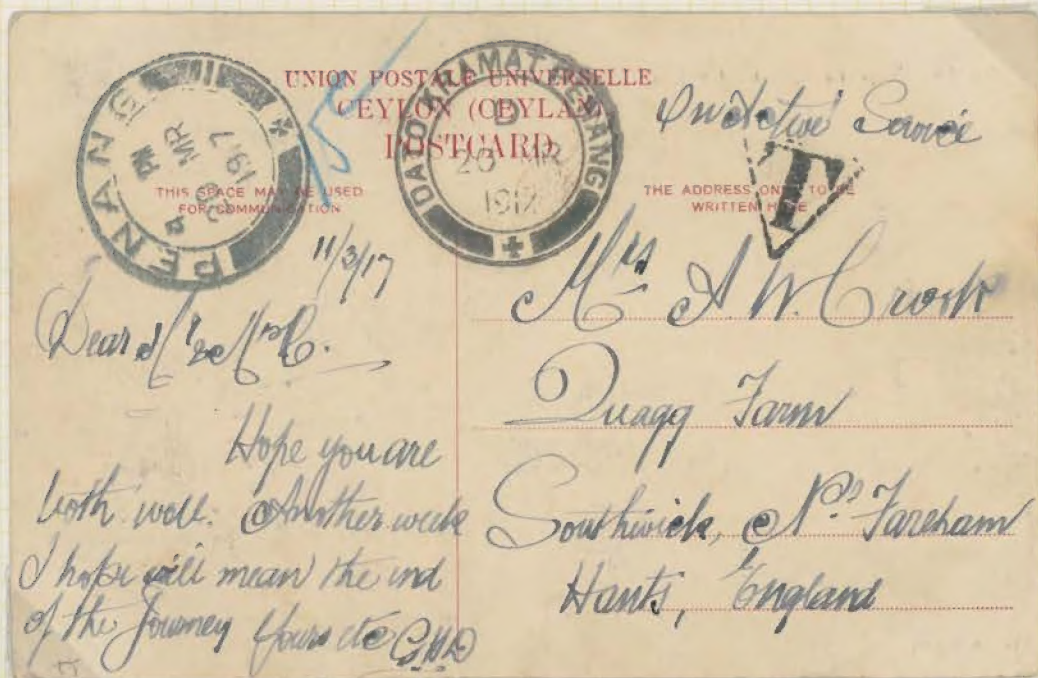 UNION POSTALE UNIVERSELLE
CEYLON (CEYLAN)
POSTCARD
THIS SPACE MAY BE USED
FOR COMMUNICATION
THE ADDRESS ONLY TO BE
WRITTEN HERE
PENANG
PM
20 MR
1917
DATO KRAMAT PENANG
D
20 MR
1917
On Active Service
T
11/3/17
Dear Mr & Mrs C.
Hope you are
both well. Another week
I hope will mean the end
of the Journey Yours etc
Mrs A. W. Crook
Quagg Farm
Southwick, Nr Fareham
Hants, England